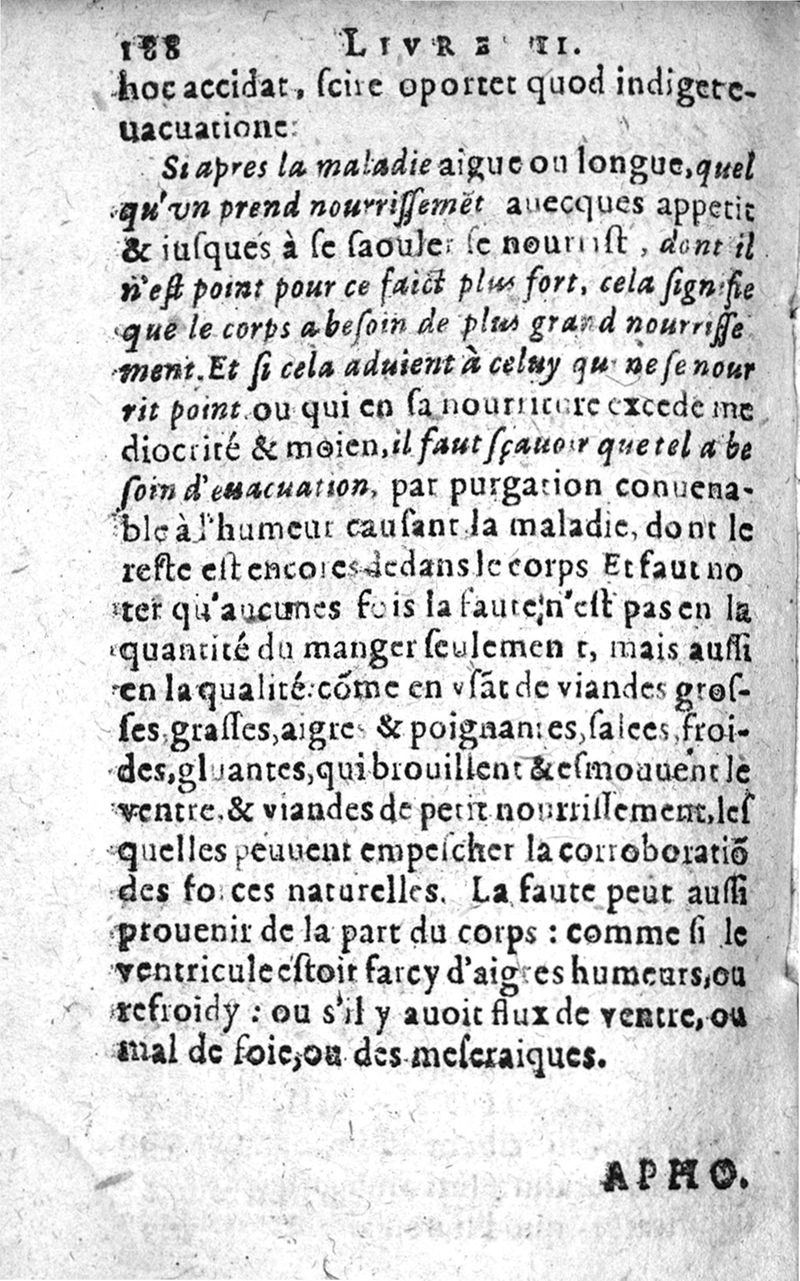 188 LIVRE II.
hoc accidat, ſcire oportet quod indiget e-
uacuatione:
Si apres la maladie aigue ou longue, quel
qu'vn prend nourriſſemēt auecques appetit
& iuſques à ſe ſaouler ſe nourriſt, dont il
n'eſt point pour ce faict plus fort, cela ſignifie
que le corps a beſoin de plus grand nourriſſe
ment. Et ſi cela aduient à celuy qui ne ſe nour
rit point ou qui en ſa nourriture excede me
diocrité & moien, il faut ſçauoir que tel a be
ſoin d'euacuation, par purgation conuena-
ble à l'humeur cauſant la maladie, dont le
reſte eſt encores dedans le corps Et faut no
ter qu'aucunes fois la faute n'eſt pas en la
quantité du manger ſeulement, mais auſſi
en la qualité: cõme en vſãt de viandes groſ-
ſes, graſſes, aigres & poignantes, ſalees, froi-
des, gluantes, qui brouillent & eſmouuent le
ventre, & viandes de petit nourriſſement, leſ
quelles peuuent empeſcher la corroboratiõ
des forces naturelles. La faute peut auſſi
prouenir de la part du corps : comme ſi le
ventricule eſtoit farcy d'aigres humeurs, ou
refroidy : ou s'il y auoit flux de ventre, ou
mal de foie, ou des meſeraiques.
APHO.